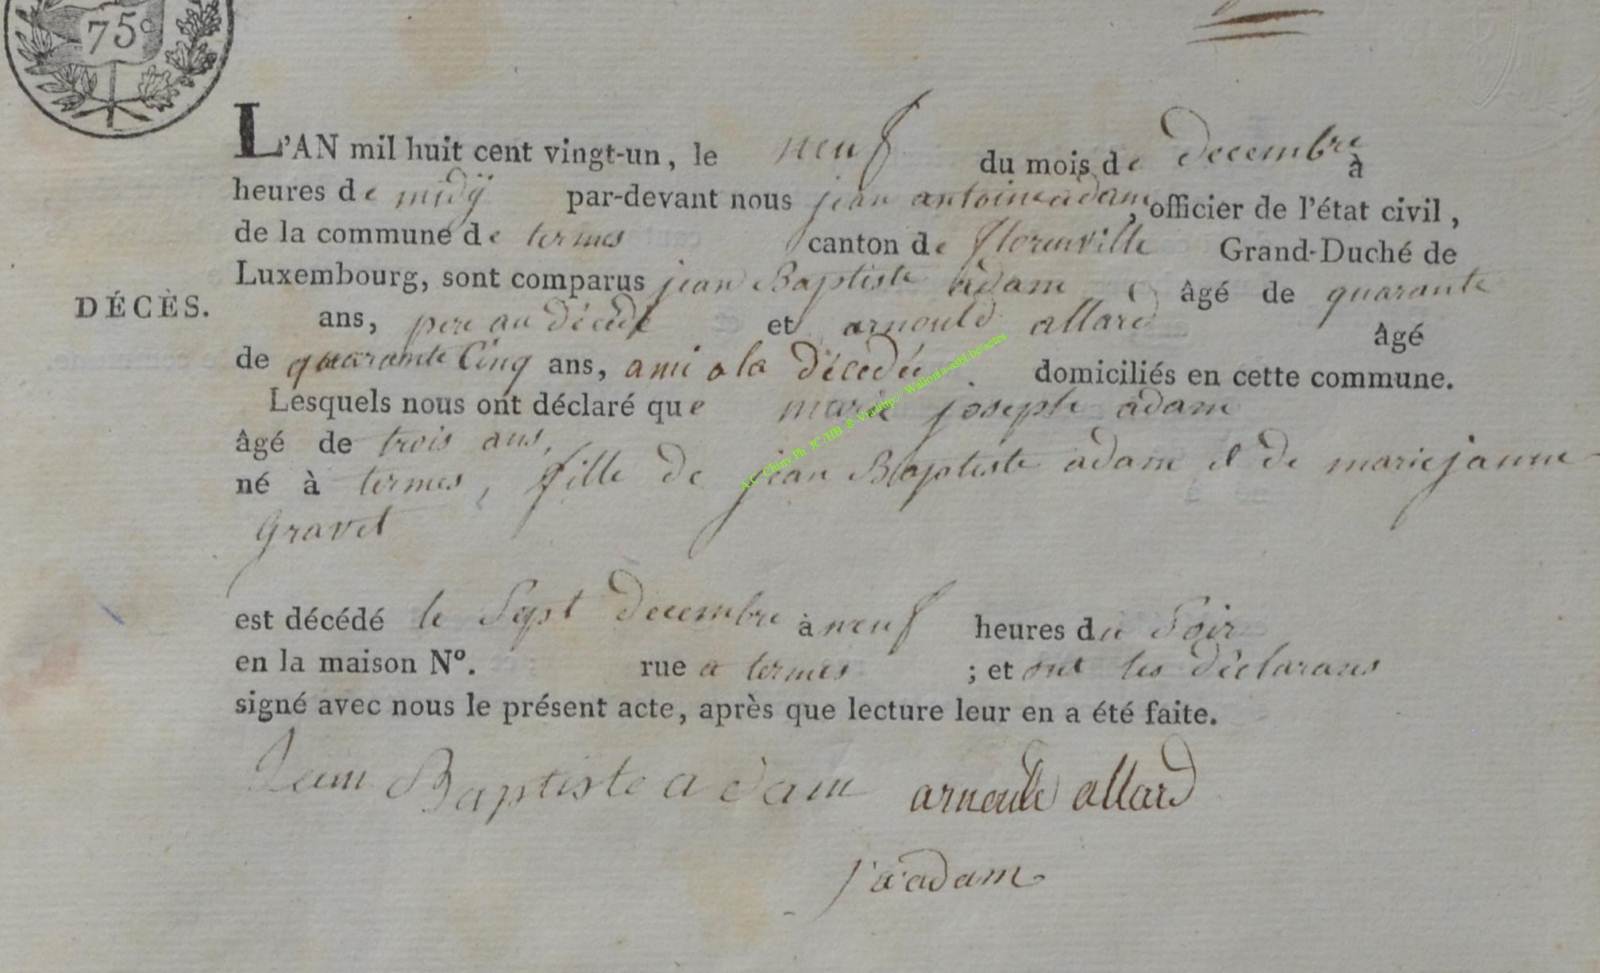 75c
L'AN mil huit cent vingt-un, le neuf du mois de decembre à
heures de midÿ par-devant nous jean antoine adam, officier de l'état civil,
de la commune de termes canton de florenville Grand-Duché de
Luxembourg, sont comparus jean Baptiste adam âgé de quarante
DÉCÈS.
ans, pere au décédé et arnould allard âgé
de quarante Cinq ans, ami a la décédée domiciliés en cette commune.
Lesquels nous ont déclaré que marie joseph adam
âgé de trois ans,
né à termes, fille de jean Baptiste adam et de marie janne
Gravet
est décédé le Sept decembre à neuf heures du Soir
en la maison N°. rue a termes ; et ont les déclarans
signé avec nous le présent acte, après que lecture leur en a été faite.
Jean Baptiste adam arnould allard
j a adam